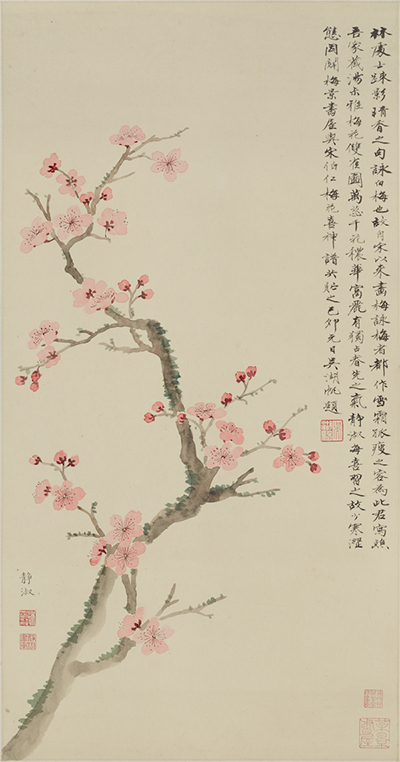 林處士疎影暗香之句詠白梅也故自宋以來畫梅詠梅者都作雪霜孤瘦之容為此君寫照
吾家藏湯尗雅梅花雙雀圖萬蕊千花穠華富麗有獨占春先之氣靜淑每喜習之故少寒澀
態因闢梅景書屋與宋伯仁梅花喜神譜祕之己卯元日吳湖帆題
靜淑